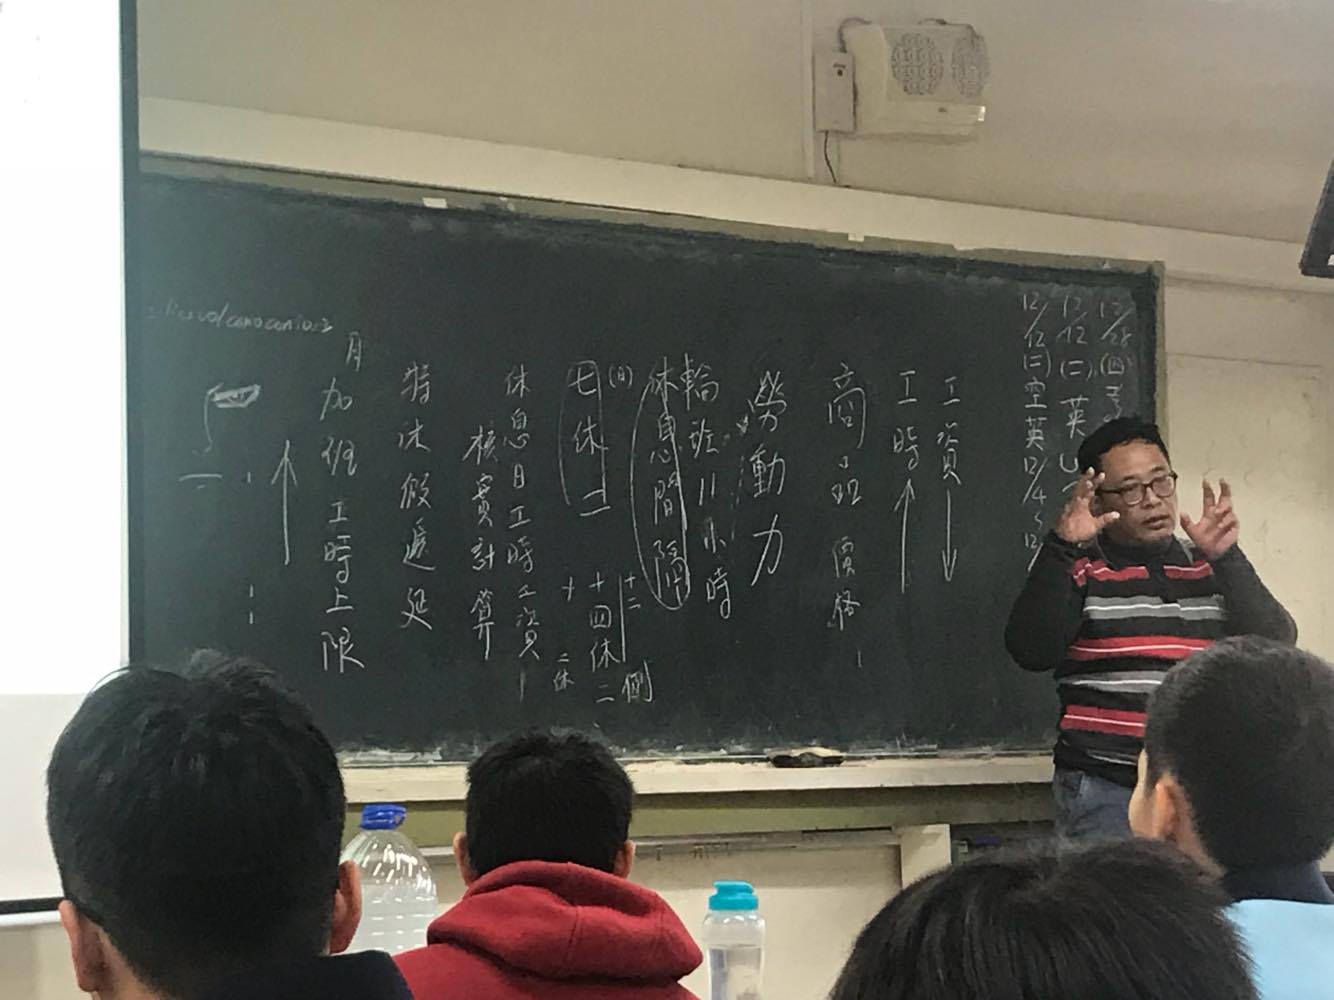 12/28(四)
12/12(二)英
12/12(二)空英12/4
工資
工時
商品 價格
勞動力
輪班11小時
休息間隔
(日)
七休一
十二
例
十四休二
二休
休息日工時工資
核實計算
特休假遞延
月加班工時上限